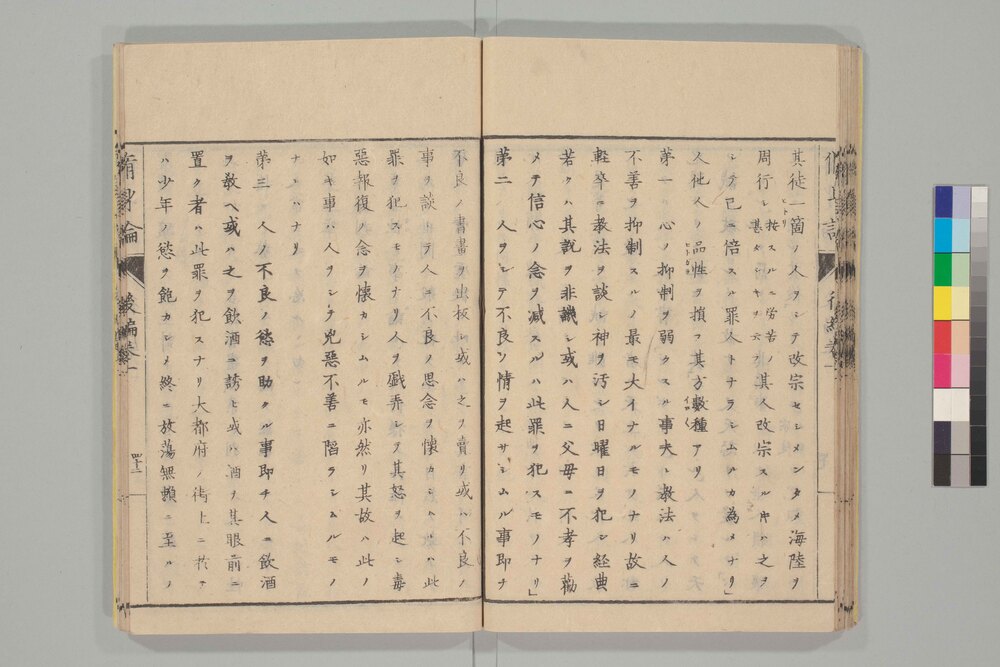 其徒一箇ノ人ヲシテ改宗セシメンタメ海陸ヲ
周行シ
甚タシキヲ云フ
按スルニ労苦ノ
其人改宗スル時ハ之ヲ
シテ己ニ倍スル罪人トナラシムルカ為メナリ」
人他人ノ品性ヲ損フ其方數種アリ
第一 心ノ抑制ヲ弱クスル事夫レ教法ハ人ノ
不善ヲ抑制スルノ最モ大イナルモノナリ故ニ
輕卒ニ教法ヲ談シ神ヲ汚シ日曜日ヲ犯シ経典
若クハ其説ヲ非譏シ或ハ人ニ父母ニ不孝ヲ勸
メテ信心ノ念ヲ減スルハ此罪ヲ犯スモノナリ」
第二 人ヲシテ不良ノ情ヲ起サシムル事即チ
不良ノ書畫ヲ出板シ或ハ之ヲ賣リ或ハ不良ノ
事ヲ談
人
不良ノ思念ヲ懐カシ
此
罪ヲ犯スモノナリ人ヲ戯弄シテ其怒ヲ起シ毒
惡報復ノ念ヲ懐カシムルモ亦然リ其故ハ此ノ
如キ事ハ人ヲシテ兇惡不善ニ陷ラシムルモノ
ナレハナリ
第三 人ノ不良ノ慾ヲ助クル事即チ人ニ飲酒
ヲ教ヘ或ハ之ヲ飲酒ニ誘ヒ或ハ酒ヲ其眼前ニ
置ク者ハ此罪ヲ犯スナリ大都府ノ街上ニ於テ
ハ少年ノ慾ヲ飽カシメ終ニ放蕩無頼ニ至ルノ
脩身論
後編卷一